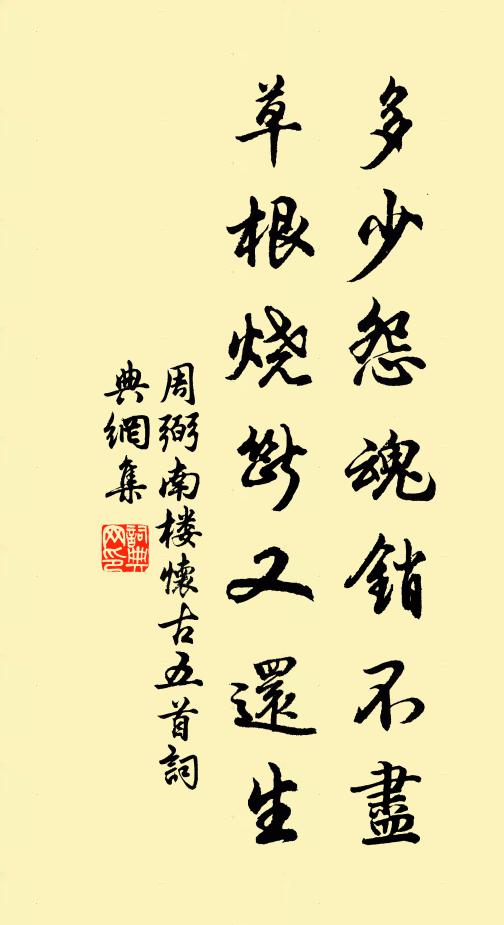 多少怨魂銷不盡
草根燒斷又還生
周弼南楼懷古五首詞
典網集
詞典網印